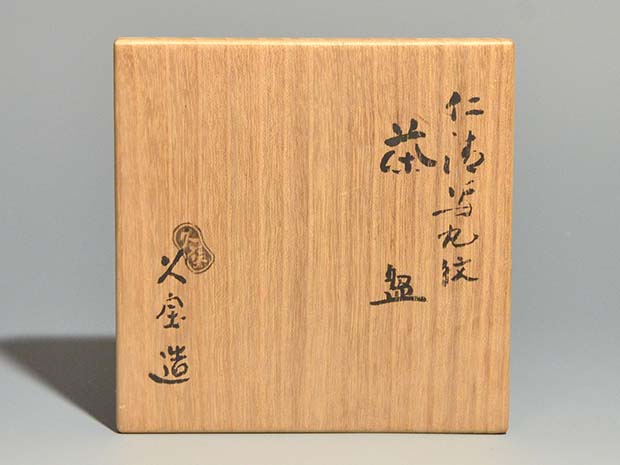 仁清写丸紋
茶盌
久宝造